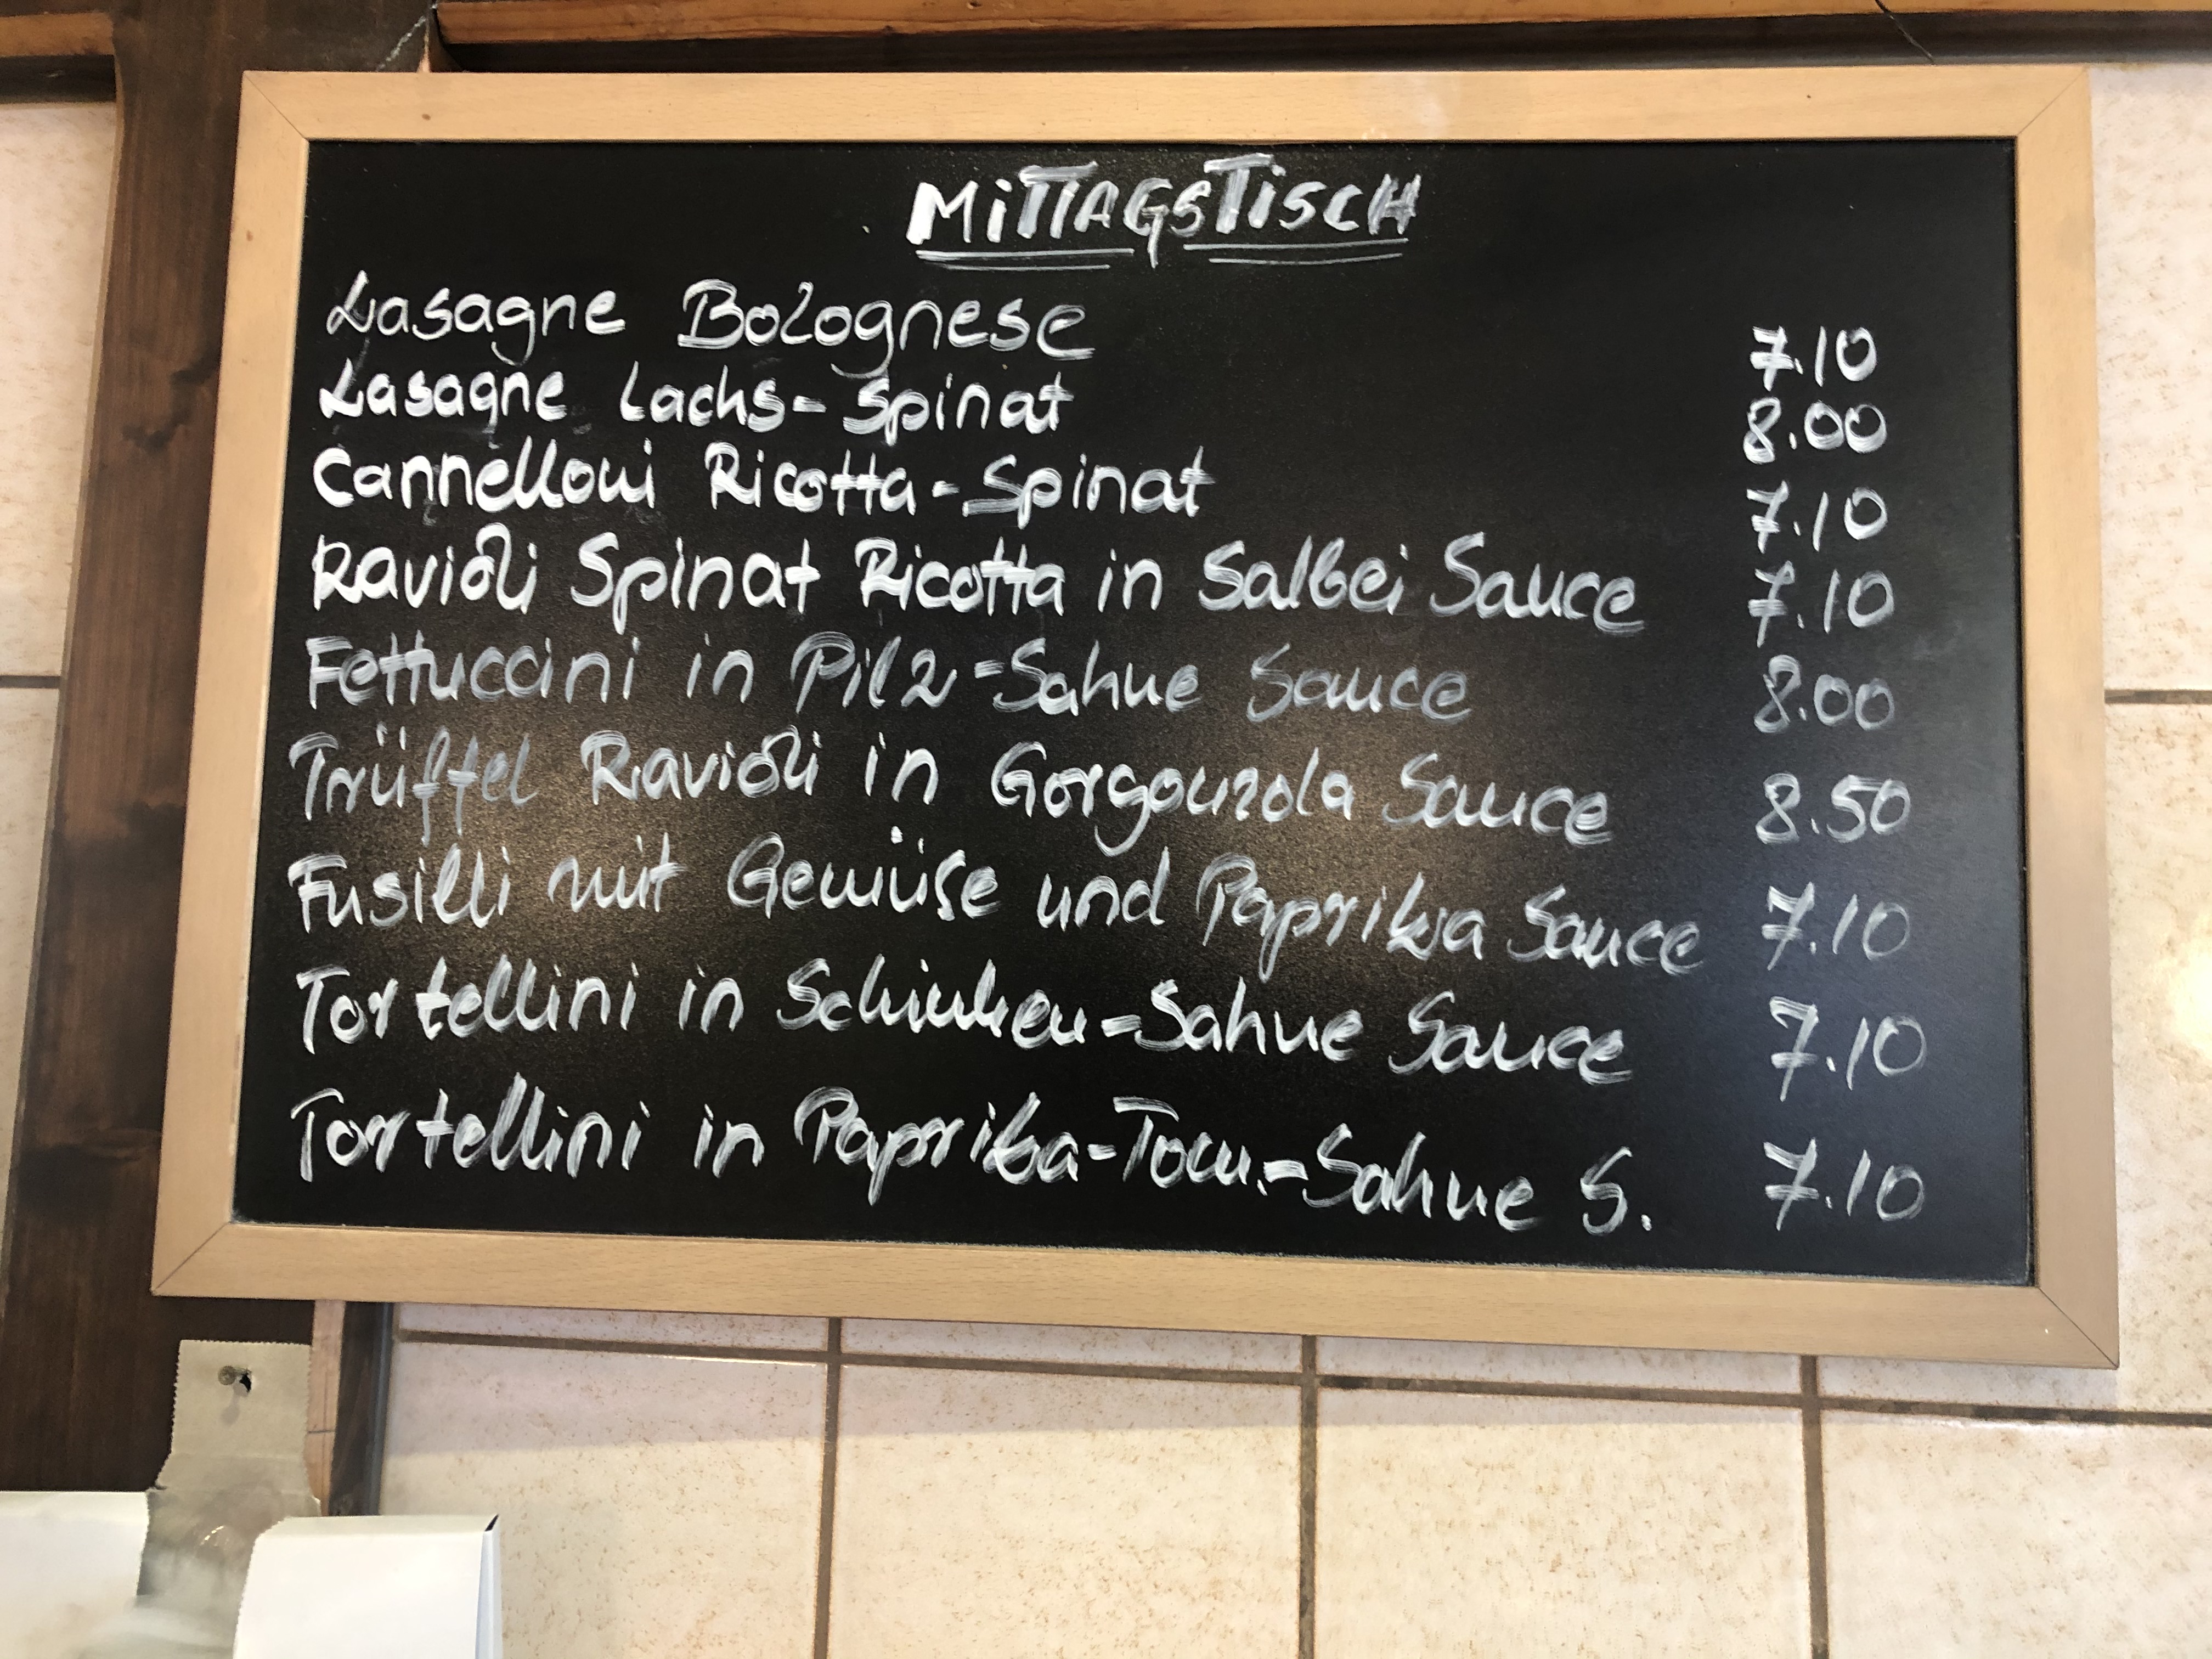 MiTTAGSTiSCH
Lasagne Bolognese 7.10
Lasagne Lachs-Spinat 8.00
Cannelloni Ricotta-Spinat 7.10
Ravioli Spinat Ricotta in Salbei Sauce 7.10
Fettuccini in Pilz-Sahne Sauce 8.00
Trüffel Ravioli in Gorgonzola Sauce 8.50
Fusilli mit Gemüse und Paprika Sauce 7.10
Tortellini in Schinken-Sahne Sauce 7.10
Tortellini in Paprika-Tom.-Sahne S. 7.10